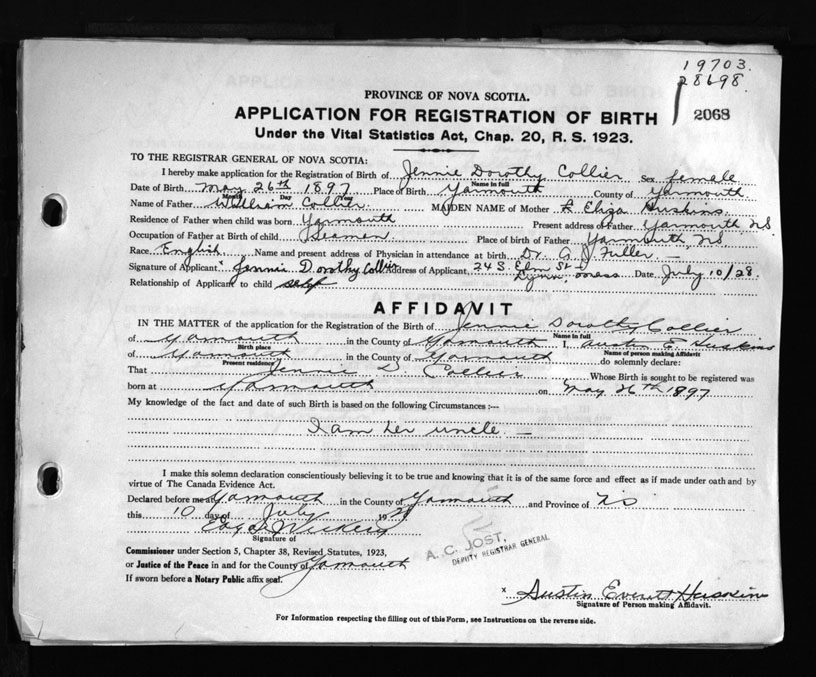 19703.
28698.
2068
PROVINCE OF NOVA SCOTIA.
APPLICATION FOR REGISTRATION OF BIRTH
Under the Vital Statistics Act, Chap. 20, R. S. 1923.
TO THE REGISTRAR GENERAL OF NOVA SCOTIA:
I hereby make application for the Registration of Birth of Jennie Dorothy Collier Sex female
Name in full
Date of Birth May 26th 1897 Place of Birth Yarmouth County of Yarmouth
Month Day
Name of Father William Collier MAIDEN NAME of Mother Eliza Huskins
Residence of Father when child was born Yarmouth Present address of Father Yarmouth NS.
Occupation of Father at Birth of child Seamen Place of birth of Father Yarmouth, NS
Race English Name and present address of Physician in attendance at birth Dr. A. J. Fuller
Signature of Applicant x Jennie Dorothy Collier Address of Applicant 24 S. Elm St Lynn, Mass Date July 10/28.
Relationship of Applicant to child Self
AFFIDAVIT
IN THE MATTER of the application for the Registration of the Birth of Jennie Dorothy Collier
Name in full
of Yarmouth in the County of Yarmouth I, Austin E Huskins
Birth place Name of person making Affidavit
of Yarmouth in the County of Yarmouth do solemnly declare:
Present residence
That Jennie D. Collier Whose Birth is sought to be registered was
born at Yarmouth on May 26th 1897
My knowledge of the fact and date of such Birth is based on the following Circumstances :—
I am her uncle —
I make this solemn declaration conscientiously believing it to be true and knowing that it is of the same force and effect as if made under oath and by
virtue of The Canada Evidence Act.
Declared before me at Yarmouth in the County of Yarmouth and Province of NS
this 10 day of July 192
Signature of
Commissioner under Section 5, Chapter 38, Revised Statutes, 1923,
or Justice of the Peace in and for the County of Yarmouth
If sworn before a Notary Public affix seal.
A. C. JOST,
DEPUTY REGISTRAR GENERAL
x Austin Everett Huskins
Signature of Person making Affidavit.
For Information respecting the filling out of this Form, see Instructions on the reverse side.